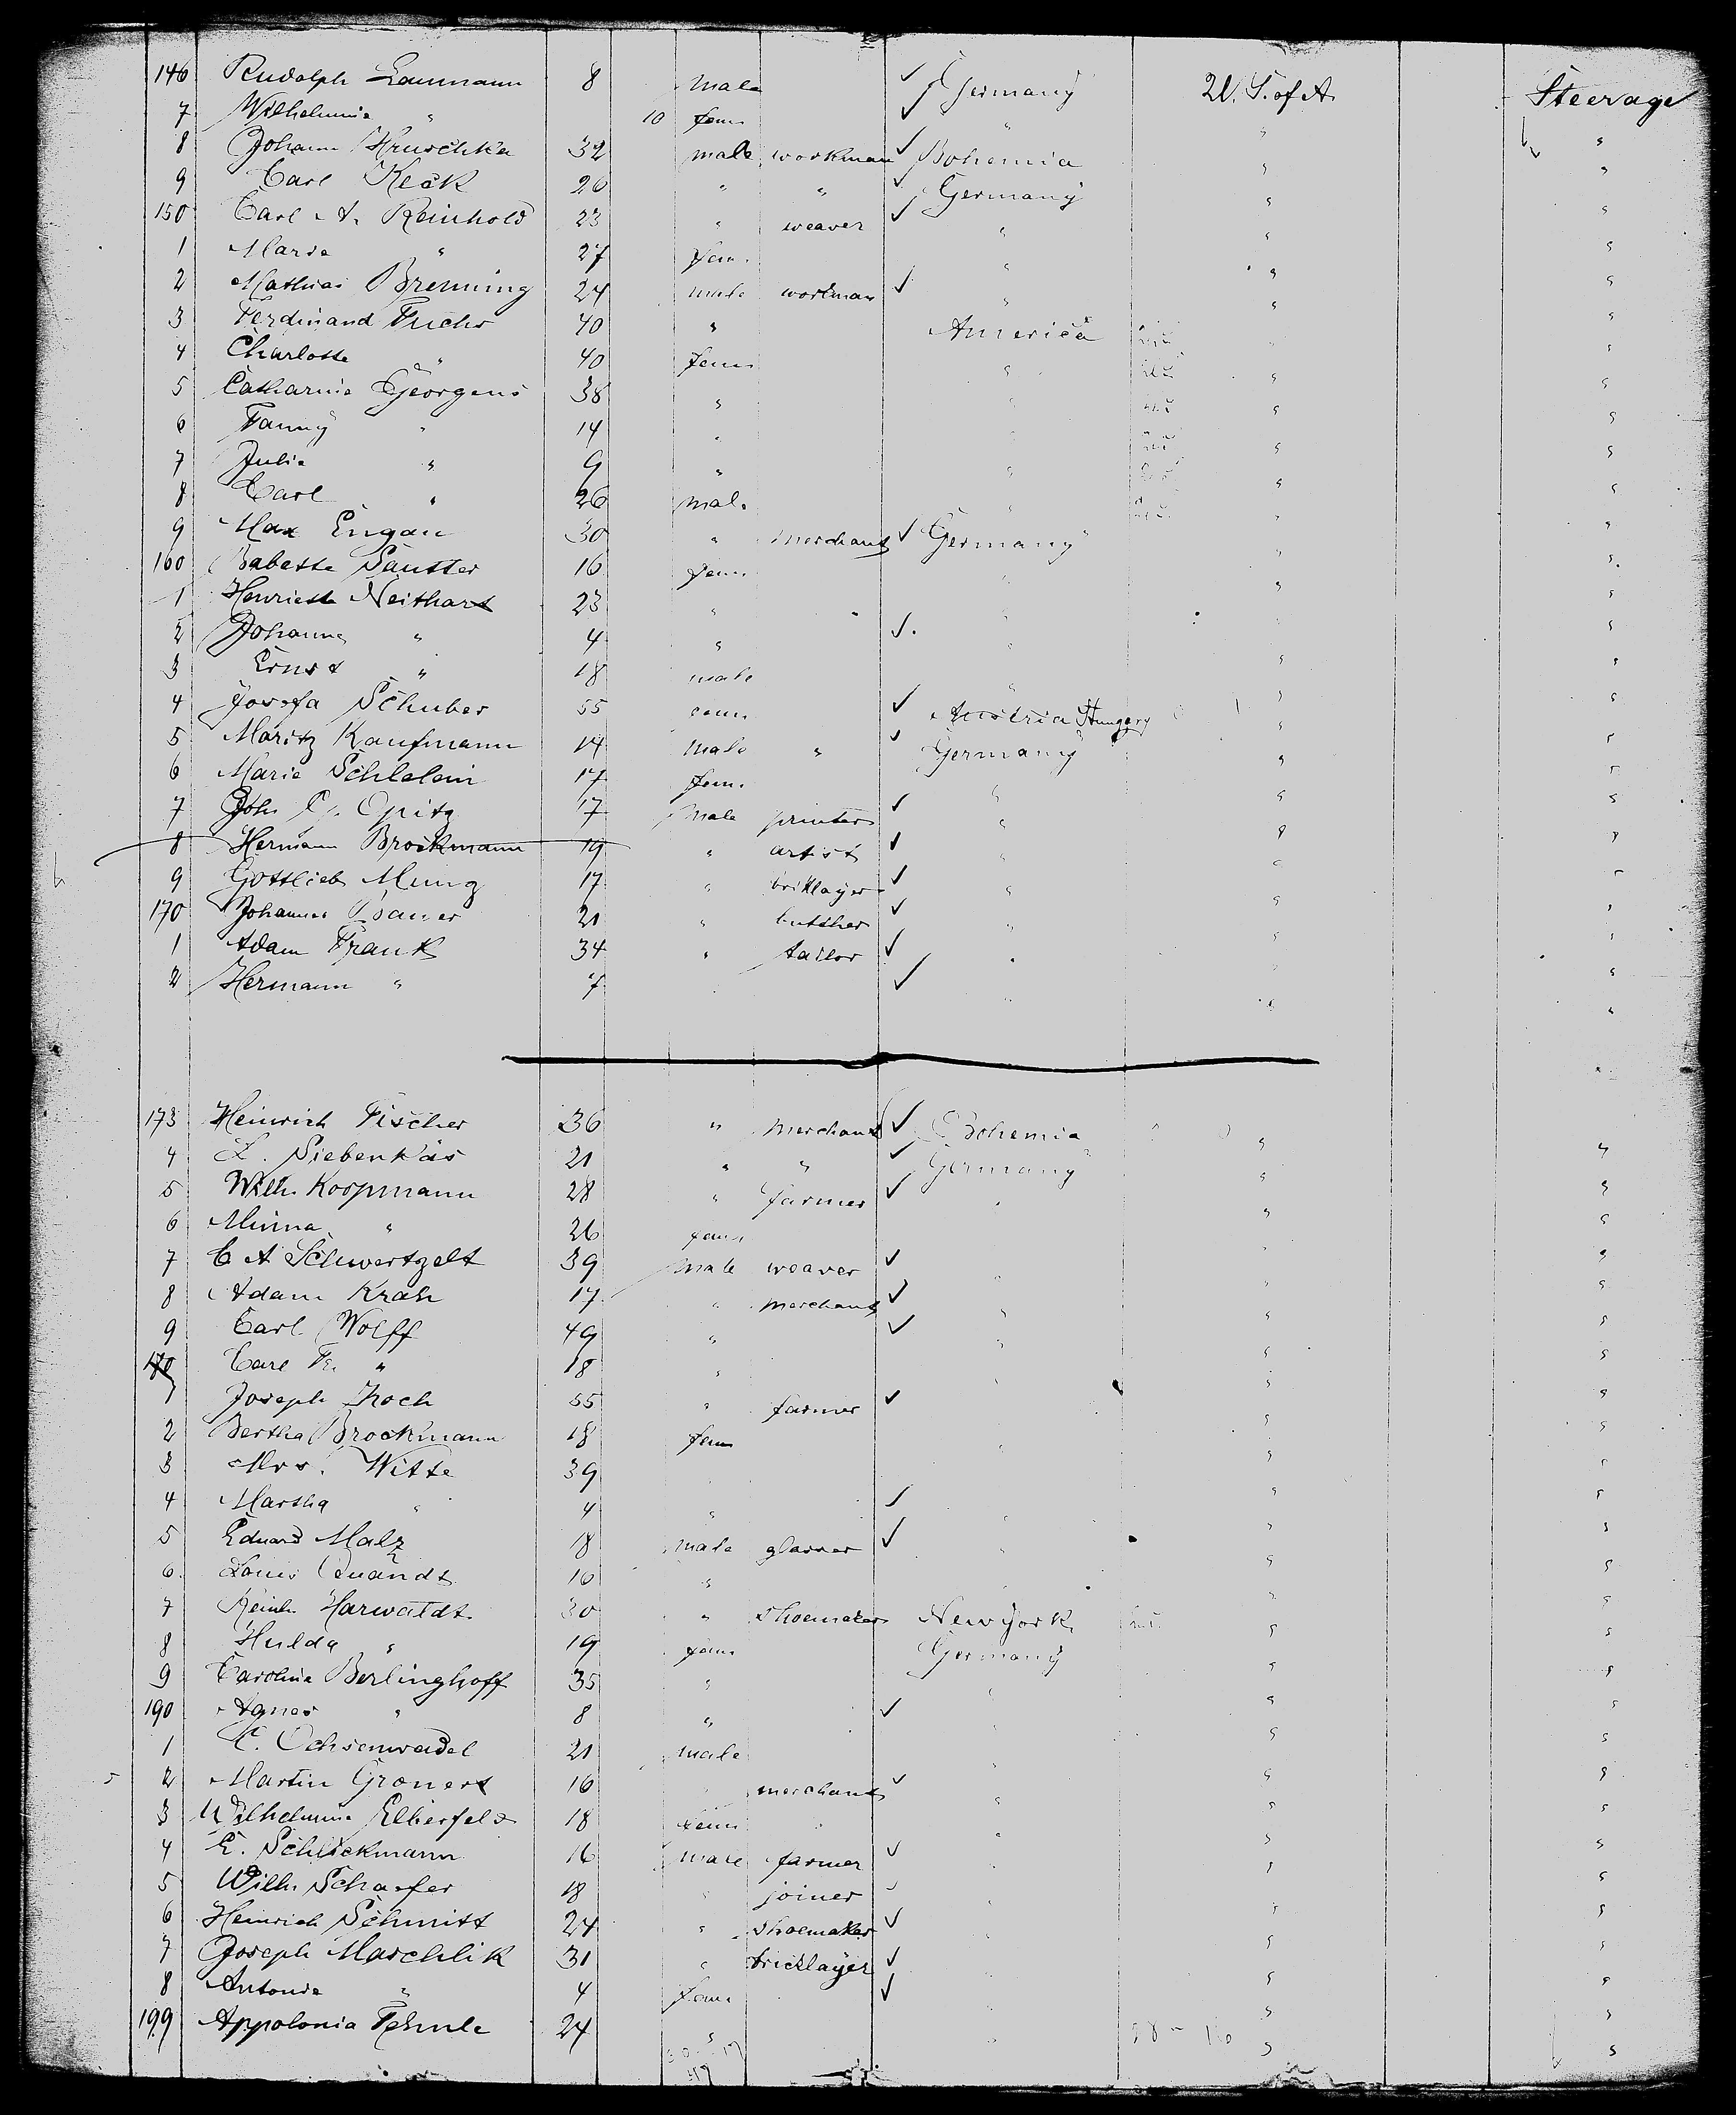 146 Rudolph Laumann 8 male ✓ Germany U.S. of A. Steerage
7 Wilhelmine " 10 fem ✓ " " "
8 Johann Hruschka 32 male workman ✓ Bohemia " "
9 Carl Keck 26 " " ✓ Germany " "
150 Carl A. Reinhold 23 " weaver ✓ " " "
1 Marie " 27 fem. " " "
2 Mathias Brenning 24 male workman ✓ " " "
3 Ferdinand Fuchs 40 " America " "
4 Charlotte " 40 fem " " "
5 Catharine Georgens 38 " " " "
6 Fanny " 14 " " " "
7 Julie " 9 " " " "
8 Carl " 26 male " " "
9 Max Engau 30 " merchant ✓ Germany " "
160 Babette Sautter 16 fem. " " "
1 Henriette Neithart 23 " " " "
2 Johanna " 4 " ✓ " " "
3 Ernst " 18 male " " "
4 Josefa Schuber 55 fem ✓ Austria Hungary " "
5 Maritz Kaufmann 14 male " ✓ Germany " "
6 Marie Schlelein 17 fem. " " "
7 Joh. Opitz 17 male printer ✓ " " "
8 Hermann Brockmann 19 " artist ✓ " " "
9 Gottlieb Munz 17 " briklayer ✓ " " "
170 Johannes Bauer 21 " butther ✓ " " "
1 Adam Frank 34 " tailor ✓ " " "
2 Hermann " 7 ✓ " " "
173 Heinrich Fischer 36 " merchant ✓ Bohemia " "
4 L. Siebenkäs 21 " " ✓ Germany " "
5 Wilh. Koopmann 28 " farmer ✓ " " "
6 Minna " 26 fem. " "
7 C A Schwertzelt 39 male weaver ✓ " " "
8 Adam Krah 17 " merchant ✓ " " "
9 Carl Wolff 49 " ✓ " " "
170 Carl Fr. " 18 " " "
1 Joseph Koch 55 " farmer ✓ " " "
2 Bertha Brockmann 18 fem " " "
3 Mrs. Witte 39 " "
4 Martha " 4 " ✓ " " "
5 Eduard Malz 18 male glasser ✓ " " "
6 Louis Quandt 16 " " " "
7 Reinh. Harwaldt 30 " shoemaker New York " "
8 Hulda " 19 fem Germany " "
9 Caroline Berlinghoff 35 " " " "
190 Agnes " 8 " ✓ " " "
1 C. Ochsenwadel 21 male " " "
2 Martin Gronert 16 " merchant ✓ " " "
3 Wilhelmine Elberfeld 18 fem " " "
4 E. Schlickmann 16 male farmer ✓ " " "
5 Wilh. Schaefer 18 " joiner ✓ " " "
6 Heinrich Schmitt 24 " shoemaker ✓ " " "
7 Joseph Maschlik 31 " bricklayer ✓ " " "
8 Antonie " 4 fem. ✓ " "
199 Appolonia 24 " " " "